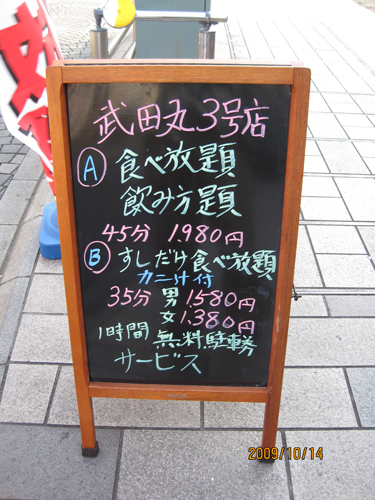 武田丸3号店
A 食べ放題
飲み方題
45分 1.980円
B すしだけ食べ放題
カニ汁付
35分 男 1.580円
女 1.380円
1時間 無料駐車券
サービス
2009/10/14